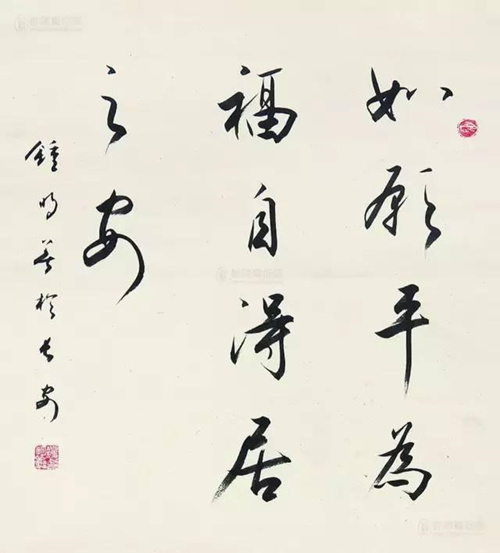 如願平為
福自得居
之安
鍾明善於長安